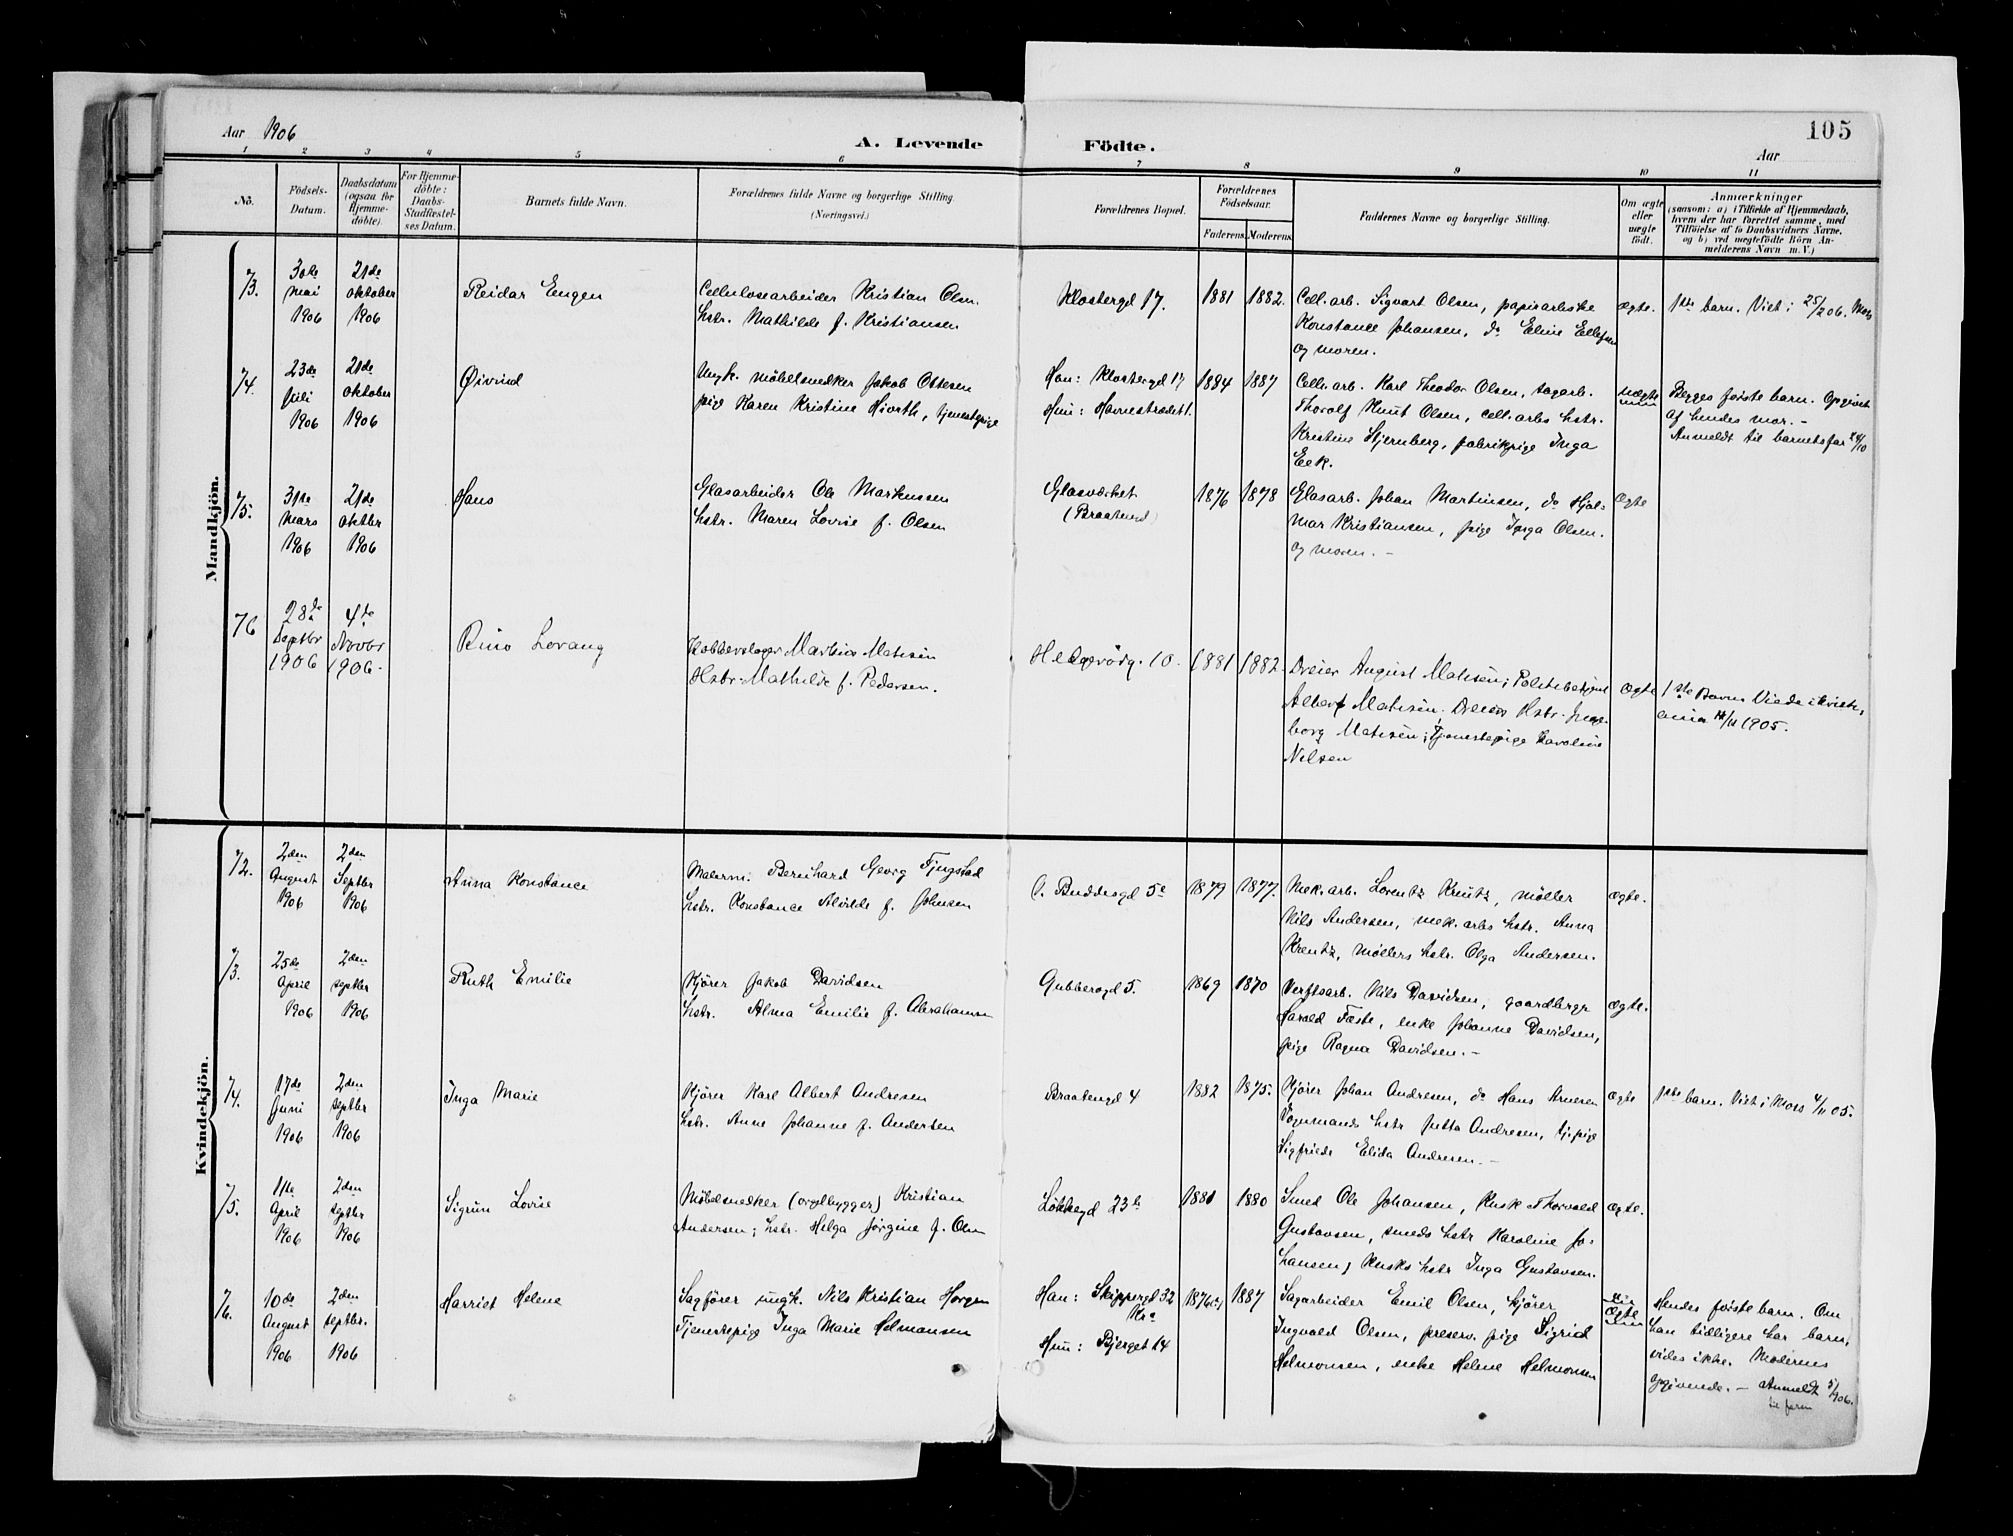 Aar 1906
A. Levende Födte.
105
Aar
1 2 3 4 5 6 7 8 9 10 11
Nō.
Födsels-
Datum.
Daabsdatum
(ogsaa for
Hjemme-
döbte).
For Hjemme-
döbte:
Daabs-
Stadfæstel-
ses Datum.
Barnets fulde Navn.
Forældrenes fulde Navne og borgerlige Stilling.
(Næringsvei.)
Forældrenes Bopæl.
Forældrenes
Födselsaar.
Faderens. Moderens.
Faddernes Navne og borgerlige Stilling.
Om ægte
eller
uægte
födt.
Anmærkninger
(saasom: a) i Tilfælde af Hjemmedaab,
hvem der har forrettet samme, med
Tilföielse af to Daabsvidners Navne,
og b) ved uegtefödte Börn An-
melderens Navn m. V.)
Mandkjön.
73.
30te
mai
1906
21de
oktober
1906
Reidar Eugen
Cellulosearbeider Kristian Olsn.
hstr. Mathilde f. Kristiansen
Klostergd 17.
1881 1882.
Cell. arb. Sigvart Olsen, papirarbeiske
Konstance Johansen, do Eline Ellefsen
og moren.
ægte.
1ste barn. Viet i 25/2 06. Moss
74.
23de
juli
1906
21de
oktober
1906
Øivind
Ungk. møbelsnedker Jakob Ottesen
pige Karen Kristine Hiorth, tjenestpige
Han: Klostergd 17
Hun: Havnestrædet 1.
1884 1887
Cell. arb. Karl Theodor Olsen, sagarb.
Thorolf Knut Olsen, cell. arbs hstr.
Kristine Stjernberg, fabrikpige Inga
Eek.
uægte
Begges første barn. Opgivet
af hendes mor. -
Anmeldt til barnets far 24/10
75.
31te
mars
1906
21de
oktbr
1906
Hans
Glasarbeider Ole Markussen
hstr. Maren Lovise f. Olsen
Glasværket
(Braatengd)
1876 1878
Glasarb. Johan Martinsen, do Hjal-
mar Kristiansen, pige Inga Olsen.
og moren. -
ægte
76
28de
Septbr
1906
4de
Novbr
1906.
Rino Lorang
Kobberslager Marius Matisen
Hstr. Mathilde f. Pedersen.
Helgerødg. 10.
1881 1882.
Dreier August Matisen; Politibetjent
Albert Matisen. Dreiers Hstr. Inge-
borg Matisen; Tjenestepige Karoline
Nilsen
ægte
1ste Barn Viede i Kristi-
ania 18/11 1905.
Kvindekjön.
72.
2den
August
1906
2den
Septbr
1906
Anna Konstance
Malerm. Bernhard Georg Fjugstad
hstr. Konstance Alvilde f. Johnsen
O. Buddesgd 5c
1879 1877.
Mek. arb. Lorentz Krentz, møller
Nils Andersen, mek. arbs hstr. Anna
Krentz, møllers hstr. Olga Andersen.
ægte.
73.
25de
April
1906
2den
septbr
1906
Ruth Emilie
Kjører Jakob Davidsen
hstr. Alma Emilie f. Abrahamsen
Gubberogd 5.
1869 1870
Verftsarb. Nils Davidsen, gaardbergr
Harald Fæste, enke Johanne Davidsen,
pige Ragna Davidsen. -
ægte.
74.
17de
Juni
1906
2den
septbr
1906
Inga Marie
Kjører Karl Albert Andresen
hstr. Anne Johanne f. Andersen
Braatengd 4
1882 1875.
Kjører Johan Andresen, do Hans Arnesen
Vognmands hstr Jutta Andresen, tj. pige
Sigfriede Elida Andresen. -
ægte
1ste barn. Viet i Moss 4/11 05.
75.
11te
April
1906
2den
septbr
1906
Sigrun Lovise
Møbelsnedker (orgelbygger) Kristian
Andersen; hstr. Helga Jørgine f. Olsn
Løkkegd 23b
1881 1880
Smed Ole Johansen, kusk Thorvald
Gustavsen, smeds hstr Karoline Jo-
hansen, kusks hstr Inga Gustavsen.
ægte.
76.
10de
August
1906
2den
septbr.
1906
Harriet Helene
Sagfører ungk. Nils Kristian Horgen
Tjenestepige Inga Marie Helmonsen
Han: Skippergd 32
Kra
Hun: Bjerget 14
1876(?) 1887
Sagarbeider Emil Olsen, kjører
Ingvald Olsen, preserv. pige Sigrid
Helmonsen, enke Helene Helmonsen
uægte
Hendes første barn. Om
han tidligere har barn,
vides ikke. Moderens
opgivende. - Anmeldt 5/9 06.
til faren